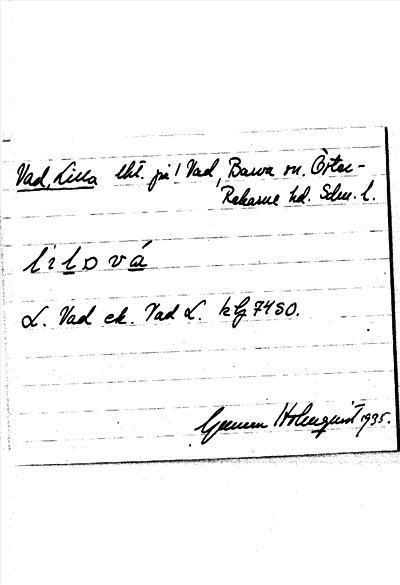 Vad, Lilla lht. på Vad, Barva sn. Öster-
Rekarne hd. Sdm. l.
lilová
L. Vad ek. Vad L. kbg 7450.
Gunnar Holmquist 1935.